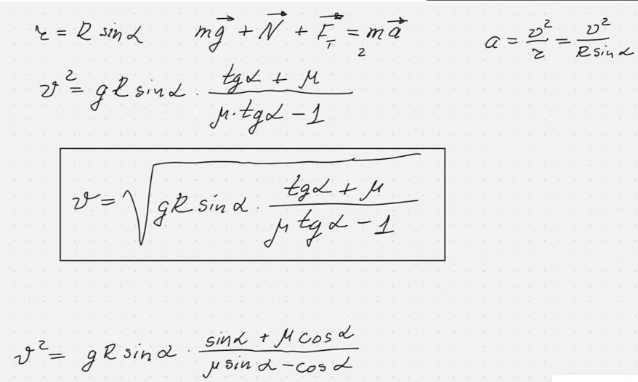 r = R sinα   mg⃗ + N⃗ + F⃗_T = ma⃗   a = v²/r = v²/(R sinα)
2
v² = gR sinα · (tgα + μ)/(μ·tgα − 1)
v = √(gR sinα · (tgα + μ)/(μ tgα − 1))
v² = gR sinα · (sinα + μ cosα)/(μ sinα − cosα)